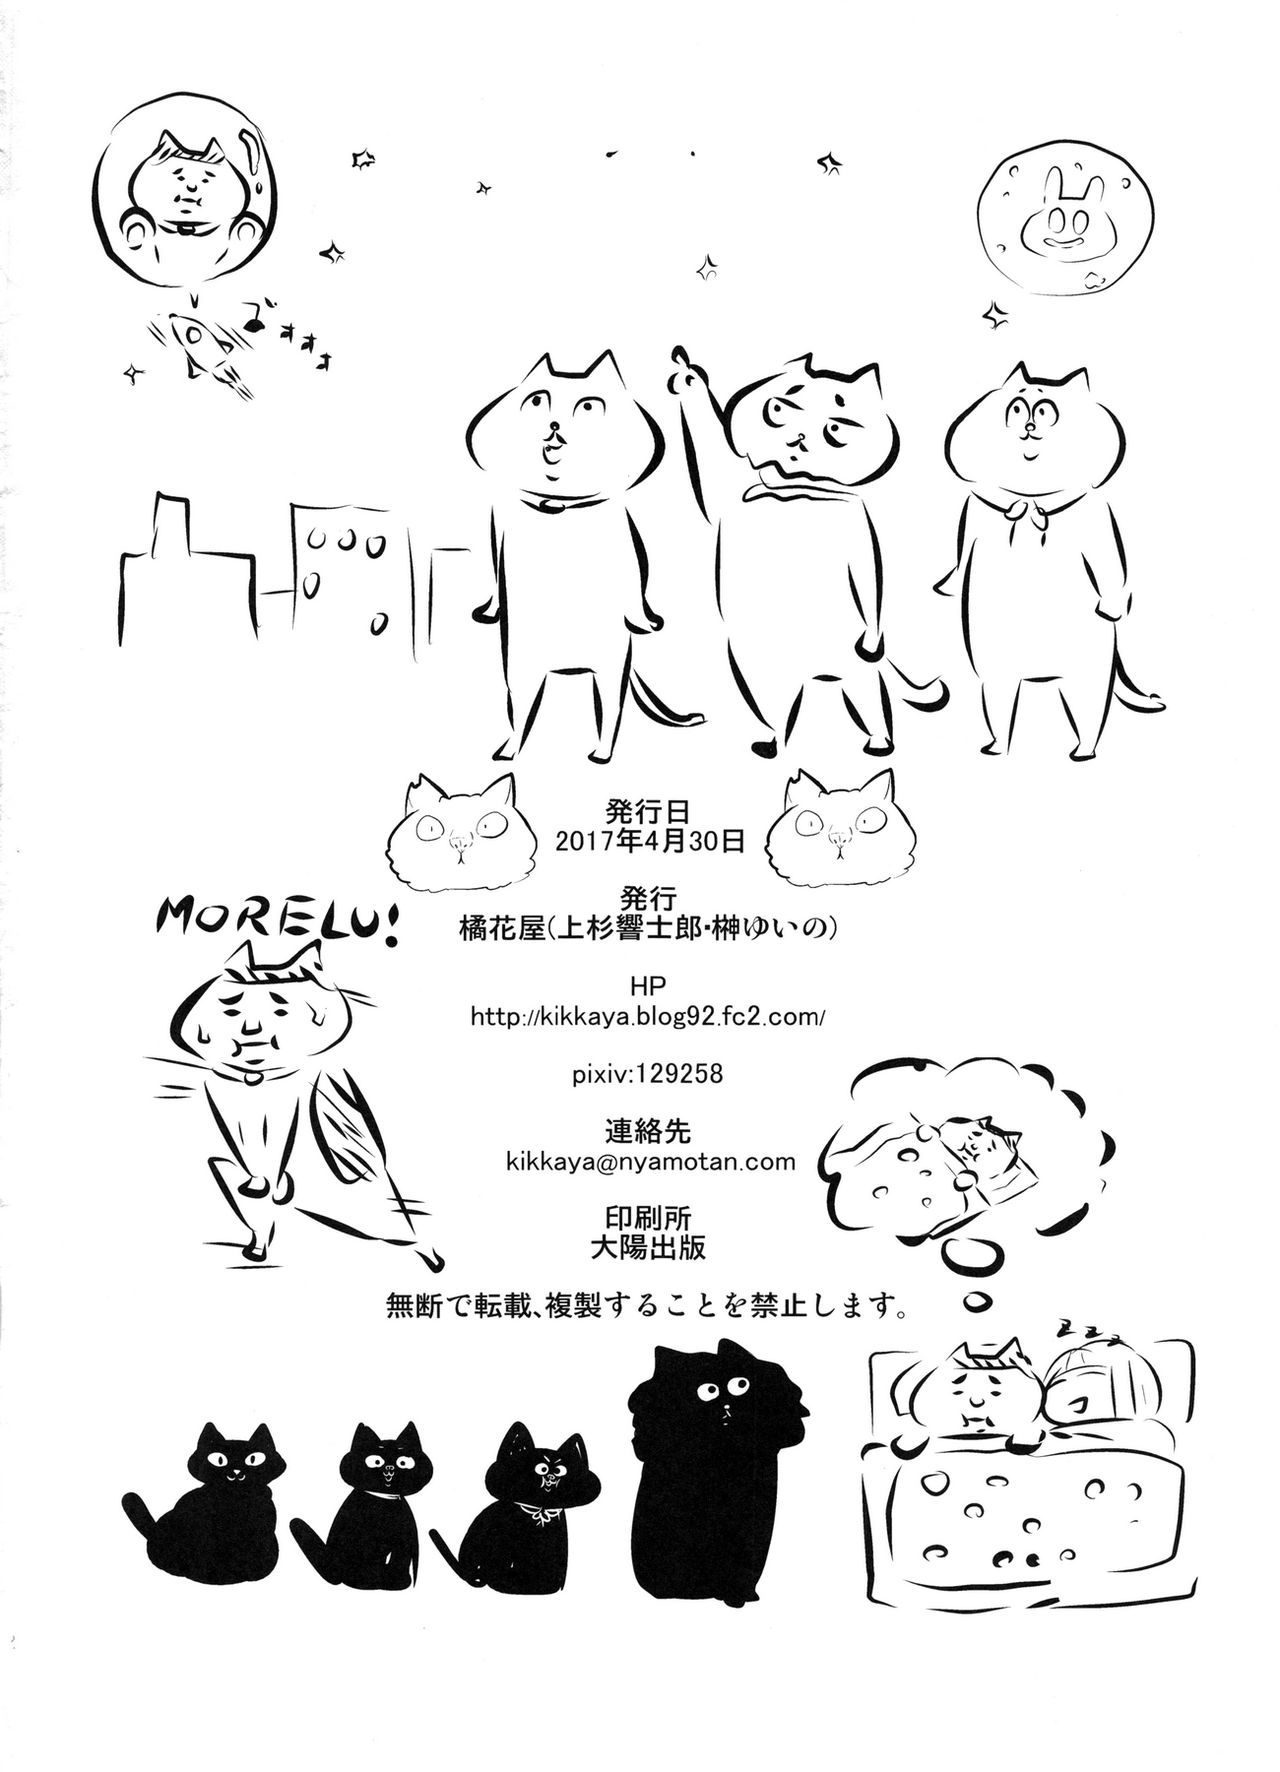 ずままま
発行日
2017年4月30日
発行
橘花屋(上杉響士郎・榊ゆいの)
MORELU!
HP
http://kikkaya.blog92.fc2.com/
pixiv:129258
連絡先
kikkaya@nyamotan.com
印刷所
大陽出版
無断で転載、複製することを禁止します。
zzz